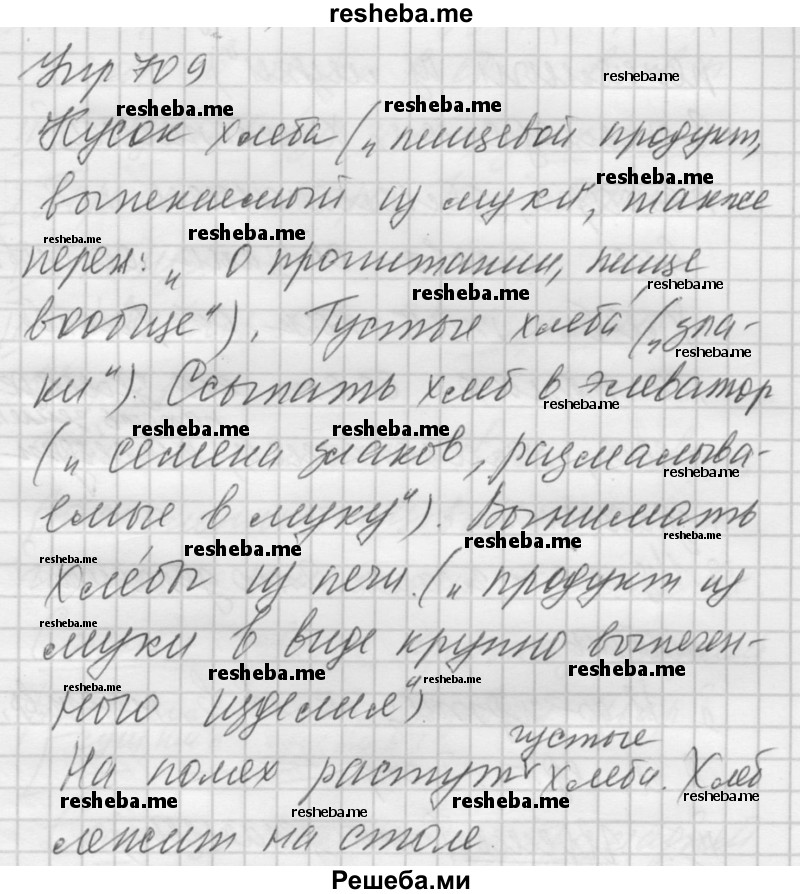 resheba.me
Упр 709
resheba.me
resheba.me resheba.me
Кусок хлеба („пищевой продукт,
resheba.me
выпекаемый из муки", также
resheba.me resheba.me
перен: „О пропитании, пище
resheba.me resheba.me
вообще"). Густые хлеба́ („зла-
resheba.me
ки"). Ссыпать хлеб в элеватор
resheba.me
resheba.me resheba.me
(„семена злаков, размалыва-
resheba.me
емые в муку"). Вынимать
resheba.me resheba.me resheba.me resheba.me
хле́бы из печи. („продукт из
resheba.me
муки в виде крупно выпечен-
resheba.me resheba.me resheba.me resheba.me
ного изделия")
густые
На полях растут хлеба. Хлеб
resheba.me resheba.me resheba.me resheba.me
лежит на столе.
Решеба.ми